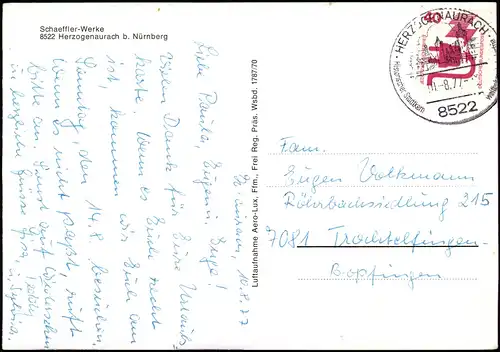 Schaeffler-Werke
8522 Herzogenaurach b. Nürnberg
10.8.77
Liebe Paula, Eugen u. Inge!
Vielen Dank für Eure Urlaubs-
karte. Wenn es Euch recht
ist, kommen wir Euch am
Sonntag, den 14.8. besuchen.
Wenn es nicht paßt, ruft
bitte an. Sonst auf Wiedersehen
u. herzliche Grüsse
Luftaufnahme Aero-Lux, Ffm., Frei Reg. Präs. Wsbd. 1787/70
40
HERZOGENAURACH
8.77
8522
Fam.
Eugen Volkmann
Röhrbachsiedlung 215
7081 Trochtelfingen
Bopfingen